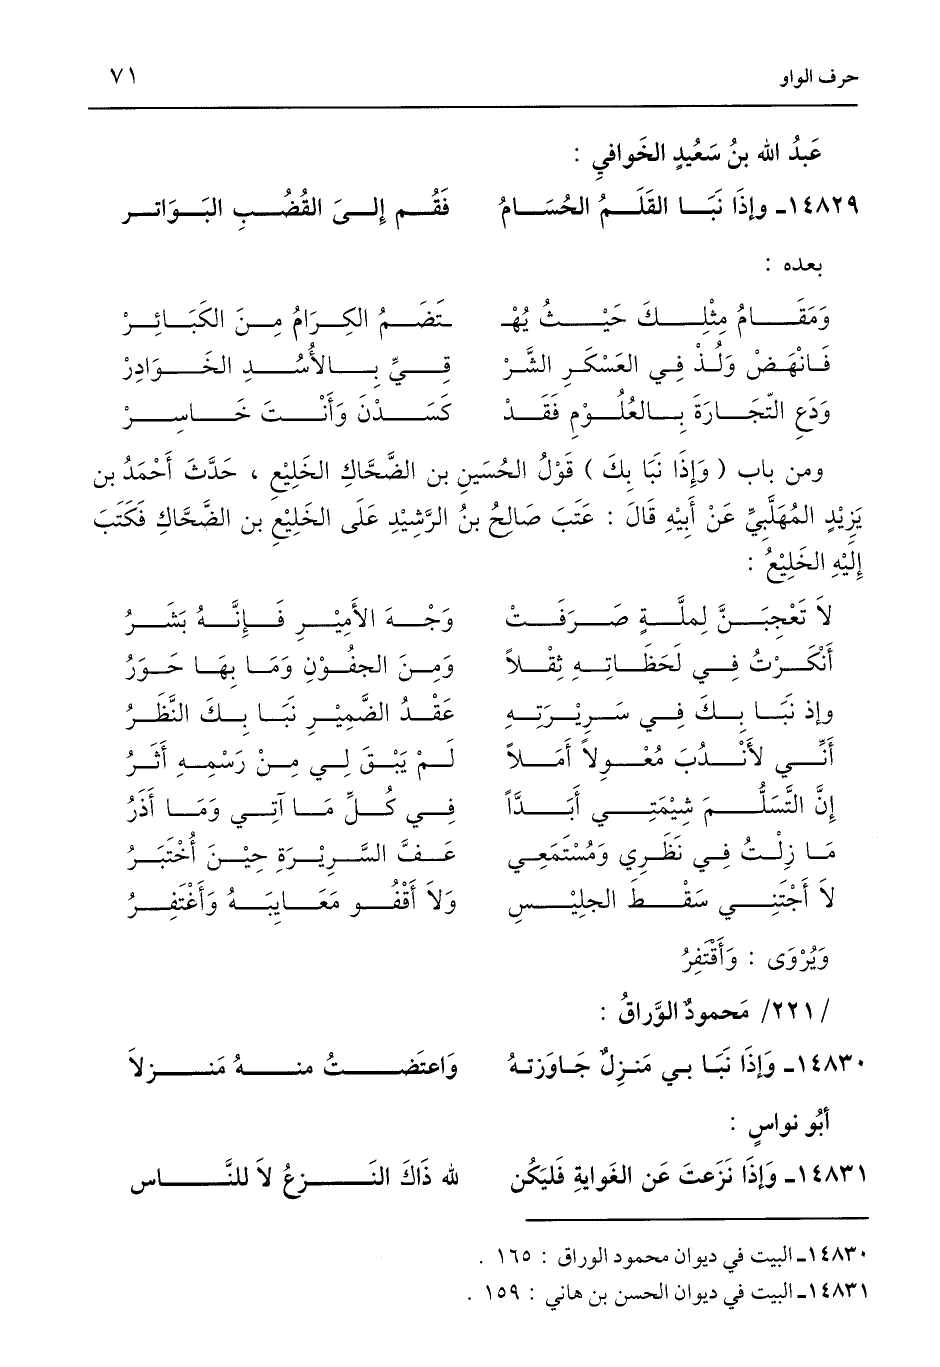 حرف الواو ٧١
عَبدُ الله بنُ سَعِيدٍ الخَوافي :
١٤٨٢٩ـ وإذَا نَبَا القَلَمُ الحُسَامُ فَقُم إلىَ القُضُبِ البَوَاتر
بعده :
وَمَقَامُ مِثْلِكَ حَيْثُ يُهْـ ـتَضَمُ الكِرَامُ مِنَ الكَبَائِرْ
فَانْهَضْ وَلُذْ فِي العَسْكَرِ الشَّرْ قِيِّ بِالأُسُدِ الخَوَادِرْ
وَدَعِ التِّجَارَةَ بِالعُلُوْمِ فَقَدْ كَسَدْنَ وَأَنْتَ خَاسِرْ
ومن باب ( وَإذَا نَبَا بِكَ ) قَوْلُ الحُسَينِ بن الضَّحَّاكِ الخَلِيْعِ ، حَدَّثَ أَحْمَدُ بن
يَزِيْدِ المُهَلَّبِيِّ عَنْ أَبِيْهِ قَالَ : عَتَبَ صَالِحُ بنُ الرَّشِيْدِ عَلَى الخَلِيْعِ بن الضَّحَّاكِ فَكَتَبَ
إلَيْهِ الخَلِيْعُ :
لاَ تَعْجَبَنَّ لِملَّةٍ صَرَفَتْ وَجْهَ الأَمِيْرِ فَإنَّهُ بَشَرُ
أَنْكَرْتُ فِي لَحَظَاتِهِ ثِقْلاً وَمِنَ الجفُوْنِ وَمَا بِهَا حَوَرُ
وإذ نَبَا بِكَ فِي سَرِيْرَتِهِ عَقْدُ الضَّمِيْرِ نَبَا بِكَ النَّظَرُ
أَنِّي لأَنْدُبَ مُعْوِلاً أَمَلاً لَمْ يَبْقَ لِي مِنْ رَسْمِهِ أَثَرُ
إنَّ التَّسَلُّمَ شِيْمَتِي أَبَدَّاً فِي كُلِّ مَا آتِي وَمَا أَذَرُ
مَا زِلْتُ فِي نَظَرِي وَمُسْتَمَعِي عَفَّ السَّرِيْرَةِ حِيْنَ أُخْتبَرُ
لاَ أَجْتَنِي سَقْطَ الجلِيْسِ وَلاَ أَقْفُو مَعَايِبَهُ وَأَغْتَفِرُ
وَيُرْوَى : وَأَقْتَفِرُ
/ ٢٢١/ مَحمودٌ الوَّراقُ :
١٤٨٣٠ـ وَإذَا نَبَا بي مَنزِلٌ جَاوَزتهُ وَاعتَضتُ منهُ مَنزلاَ
أبُو نواسٍ :
١٤٨٣١ـ وَإذَا نَزَعتَ عَنِ الغَوايةِ فَليَكُن لله ذَاكَ النَزعُ لاَ للنَّاس
١٤٨٣٠ـ البيت في ديوان محمود الوراق : ١٦٥ .
١٤٨٣١ـ البيت في ديوان الحسن بن هاني : ١٥٩ .